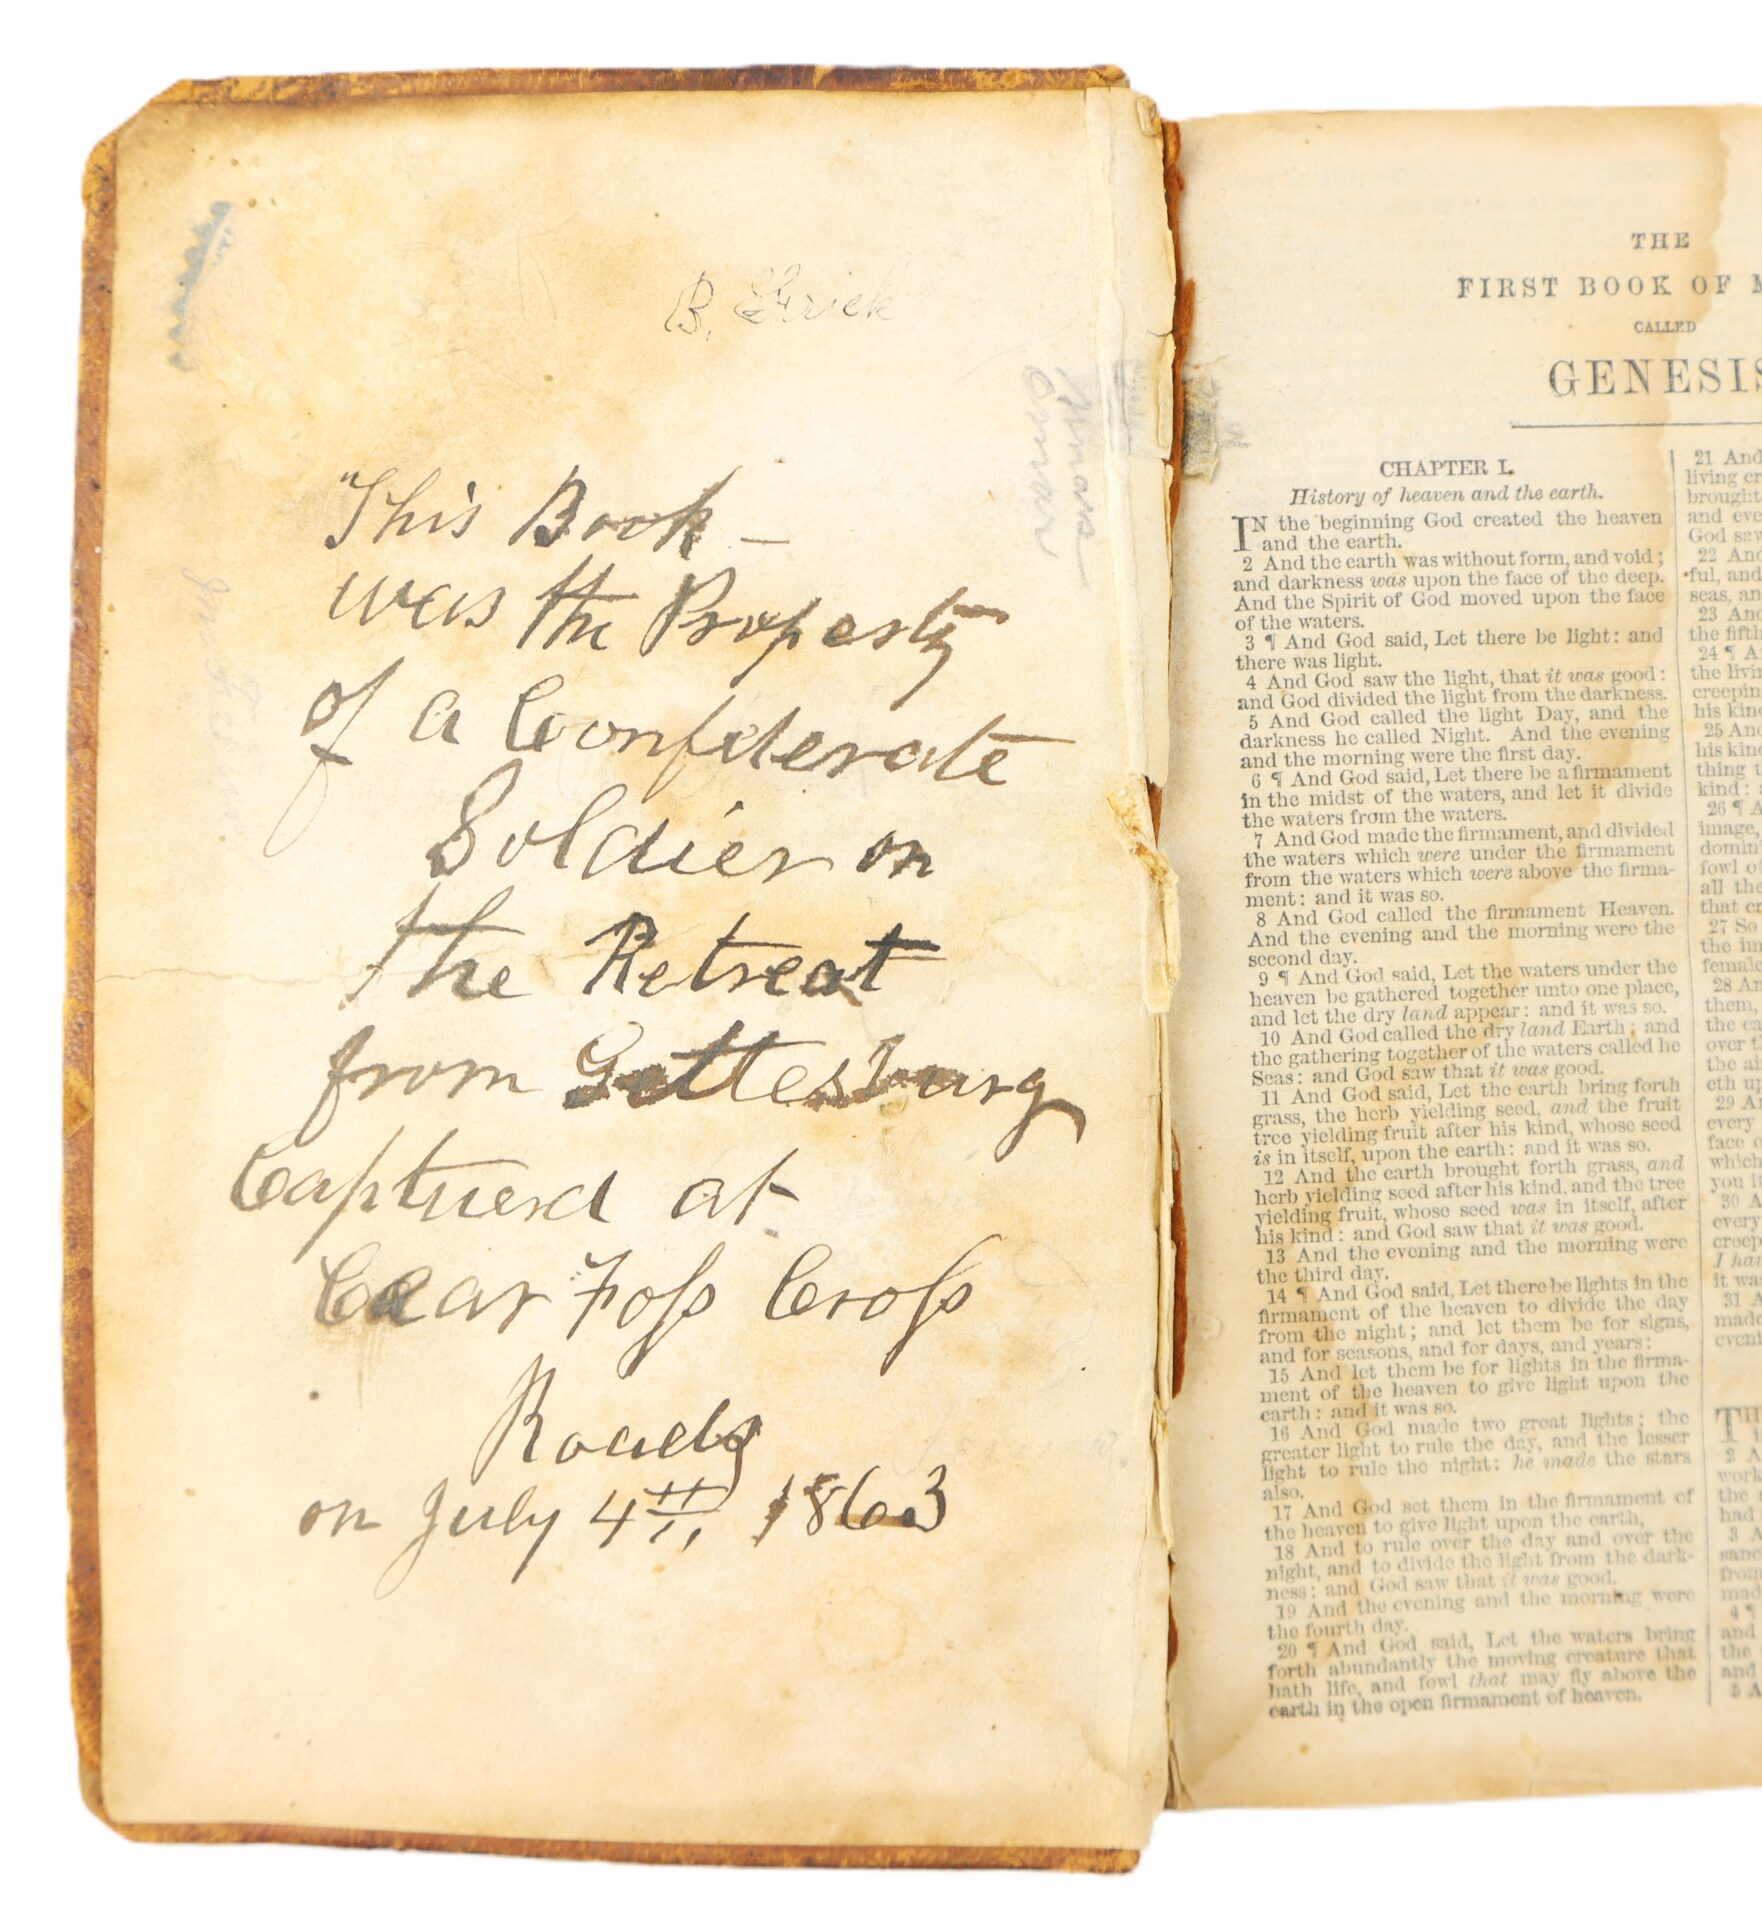 B.
"This Book -
was the Property
of a Confederate
Soldier on
the Retreat
from Gettesburg
Captuerd at
Clear Foss Cross
Roads
on July 4th 1863
THE
FIRST BOOK OF
CALLED
GENESIS
CHAPTER I.
History of heaven and the earth.
IN the beginning God created the heaven
and the earth.
2 And the earth was without form, and void;
and darkness was upon the face of the deep.
And the Spirit of God moved upon the face
of the waters.
3 ¶ And God said, Let there be light: and
there was light.
4 And God saw the light, that it was good:
and God divided the light from the darkness.
5 And God called the light Day, and the
darkness he called Night. And the evening
and the morning were the first day.
6 ¶ And God said, Let there be a firmament
in the midst of the waters, and let it divide
the waters from the waters.
7 And God made the firmament, and divided
the waters which were under the firmament
from the waters which were above the firma-
ment: and it was so.
8 And God called the firmament Heaven.
And the evening and the morning were the
second day.
9 ¶ And God said, Let the waters under the
heaven be gathered together unto one place,
and let the dry land appear: and it was so.
10 And God called the dry land Earth; and
the gathering together of the waters called he
Seas: and God saw that it was good.
11 And God said, Let the earth bring forth
grass, the herb yielding seed, and the fruit
tree yielding fruit after his kind, whose seed
is in itself, upon the earth: and it was so.
12 And the earth brought forth grass, and
herb yielding seed after his kind, and the tree
yielding fruit, whose seed was in itself, after
his kind: and God saw that it was good.
13 And the evening and the morning were
the third day.
14 ¶ And God said, Let there be lights in the
firmament of the heaven to divide the day
from the night; and let them be for signs,
and for seasons, and for days, and years:
15 And let them be for lights in the firma-
ment of the heaven to give light upon the
earth: and it was so.
16 And God made two great lights; the
greater light to rule the day, and the lesser
light to rule the night: he made the stars
also.
17 And God set them in the firmament of
the heaven to give light upon the earth,
18 And to rule over the day and over the
night, and to divide the light from the dark-
ness: and God saw that it was good.
19 And the evening and the morning were
the fourth day.
20 ¶ And God said, Let the waters bring
forth abundantly the moving creature that
hath life, and fowl that may fly above the
earth in the open firmament of heaven.
21 And
living
brought
and
God saw
22 And
ful, and
seas,
23 And
the fifth
24 ¶
the
his
25 And
his
thing
kind:
26 ¶
image,
fowl
all the
that
27 So
the
female
28
them,
the
over
the
29
every
face
which
you
30
every
I
it was
31
made
2
the
had
3
from
made
4 ¶
and
the
and
5